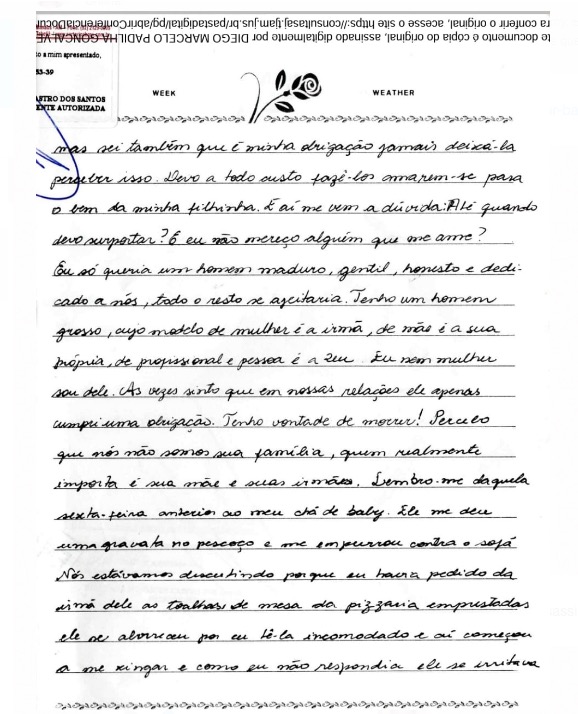 ra conferir o original, acesse o site https://consultasaj.tjam.jus.br/pastadigital/pg/abrirConferenciaDocu
te documento é cópia do original, assinado digitalmente por DIEGO MARCELO PADILHA GONCALVE
o a mim apresentado,
53-39
STRO DOS SANTOS
ENTE AUTORIZADA
WEEK WEATHER
mas sei também que é minha obrigação jamais deixá-la
perceber isso. Devo a todo custo fazê-los amarem-se para
o bem da minha filhinha. E aí me vem a dúvida: Até quando
devo surportar? E eu não mereço alguém que me ame?
Eu só queria um homem maduro, gentil, honesto e dedi-
cado a nós, todo o resto se ajeitaria. Tenho um homem
grosso, cujo modelo de mulher é a irmã, de mãe é a sua
própria, de profissional e pessoa é a . Eu nem mulher
sou dele. As vezes sinto que em nossas relações ele apenas
cumpri uma obrigação. Tenho vontade de morrer! Percebo
que nós não somos sua família, quem realmente
importa é sua mãe e suas irmães. Lembro-me daquela
sexta-feira anterior ao meu chá de baby. Ele me deu
uma gravata no pescoço e me empurrou contra o sofá
Nós estávamos discutindo porque eu havia pedido da
irmã dele as toalhas de mesa da pizzaria emprestadas
ele se aborreceu por eu tê-la incomodado e aí começou
a me xingar e como eu não respondia ele se irritava